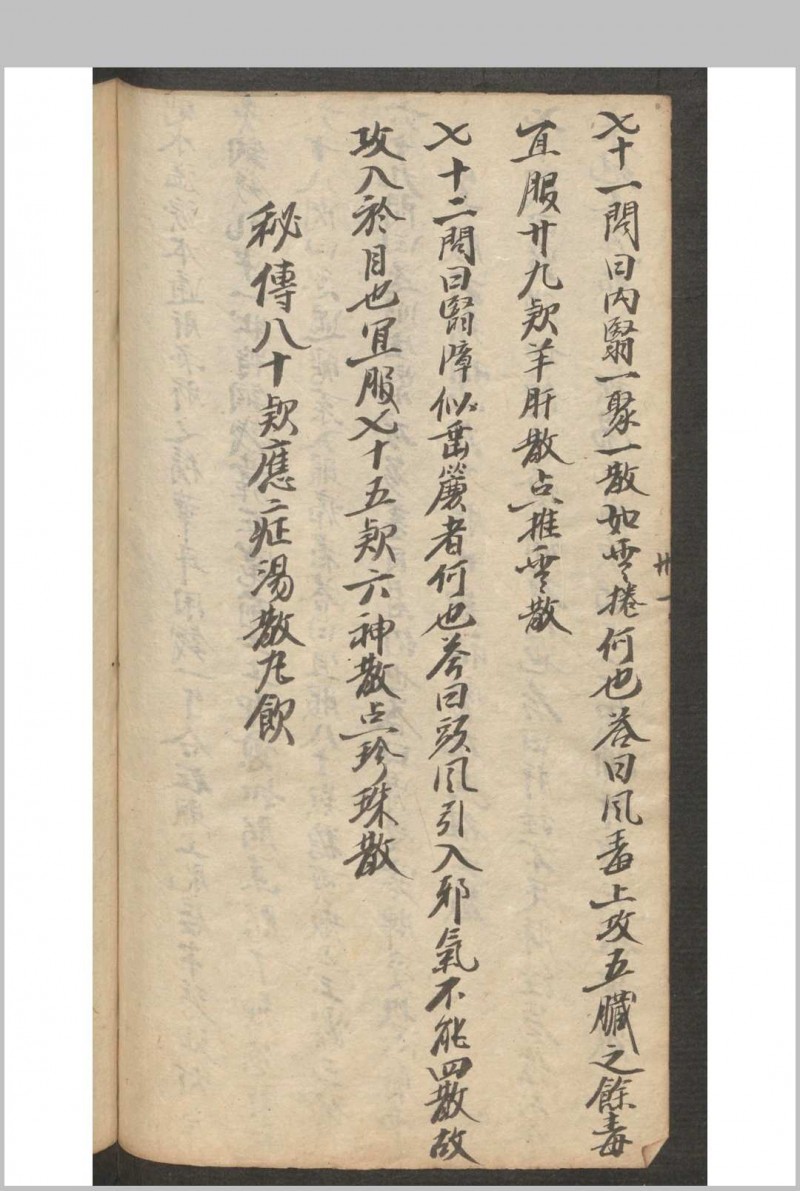 七十一問曰内翳一聚一散如雲捲何也荅曰风毒上攻五臟之餘毒
宜服廿九款羊肝散点推雲散
七十二問曰翳障似垂簾者何也荅曰頭风引入邪氣不能四散故
攻入於目也宜服七十五款六神散点珍珠散
秘傳八十款應症湯散丸飲
卅一